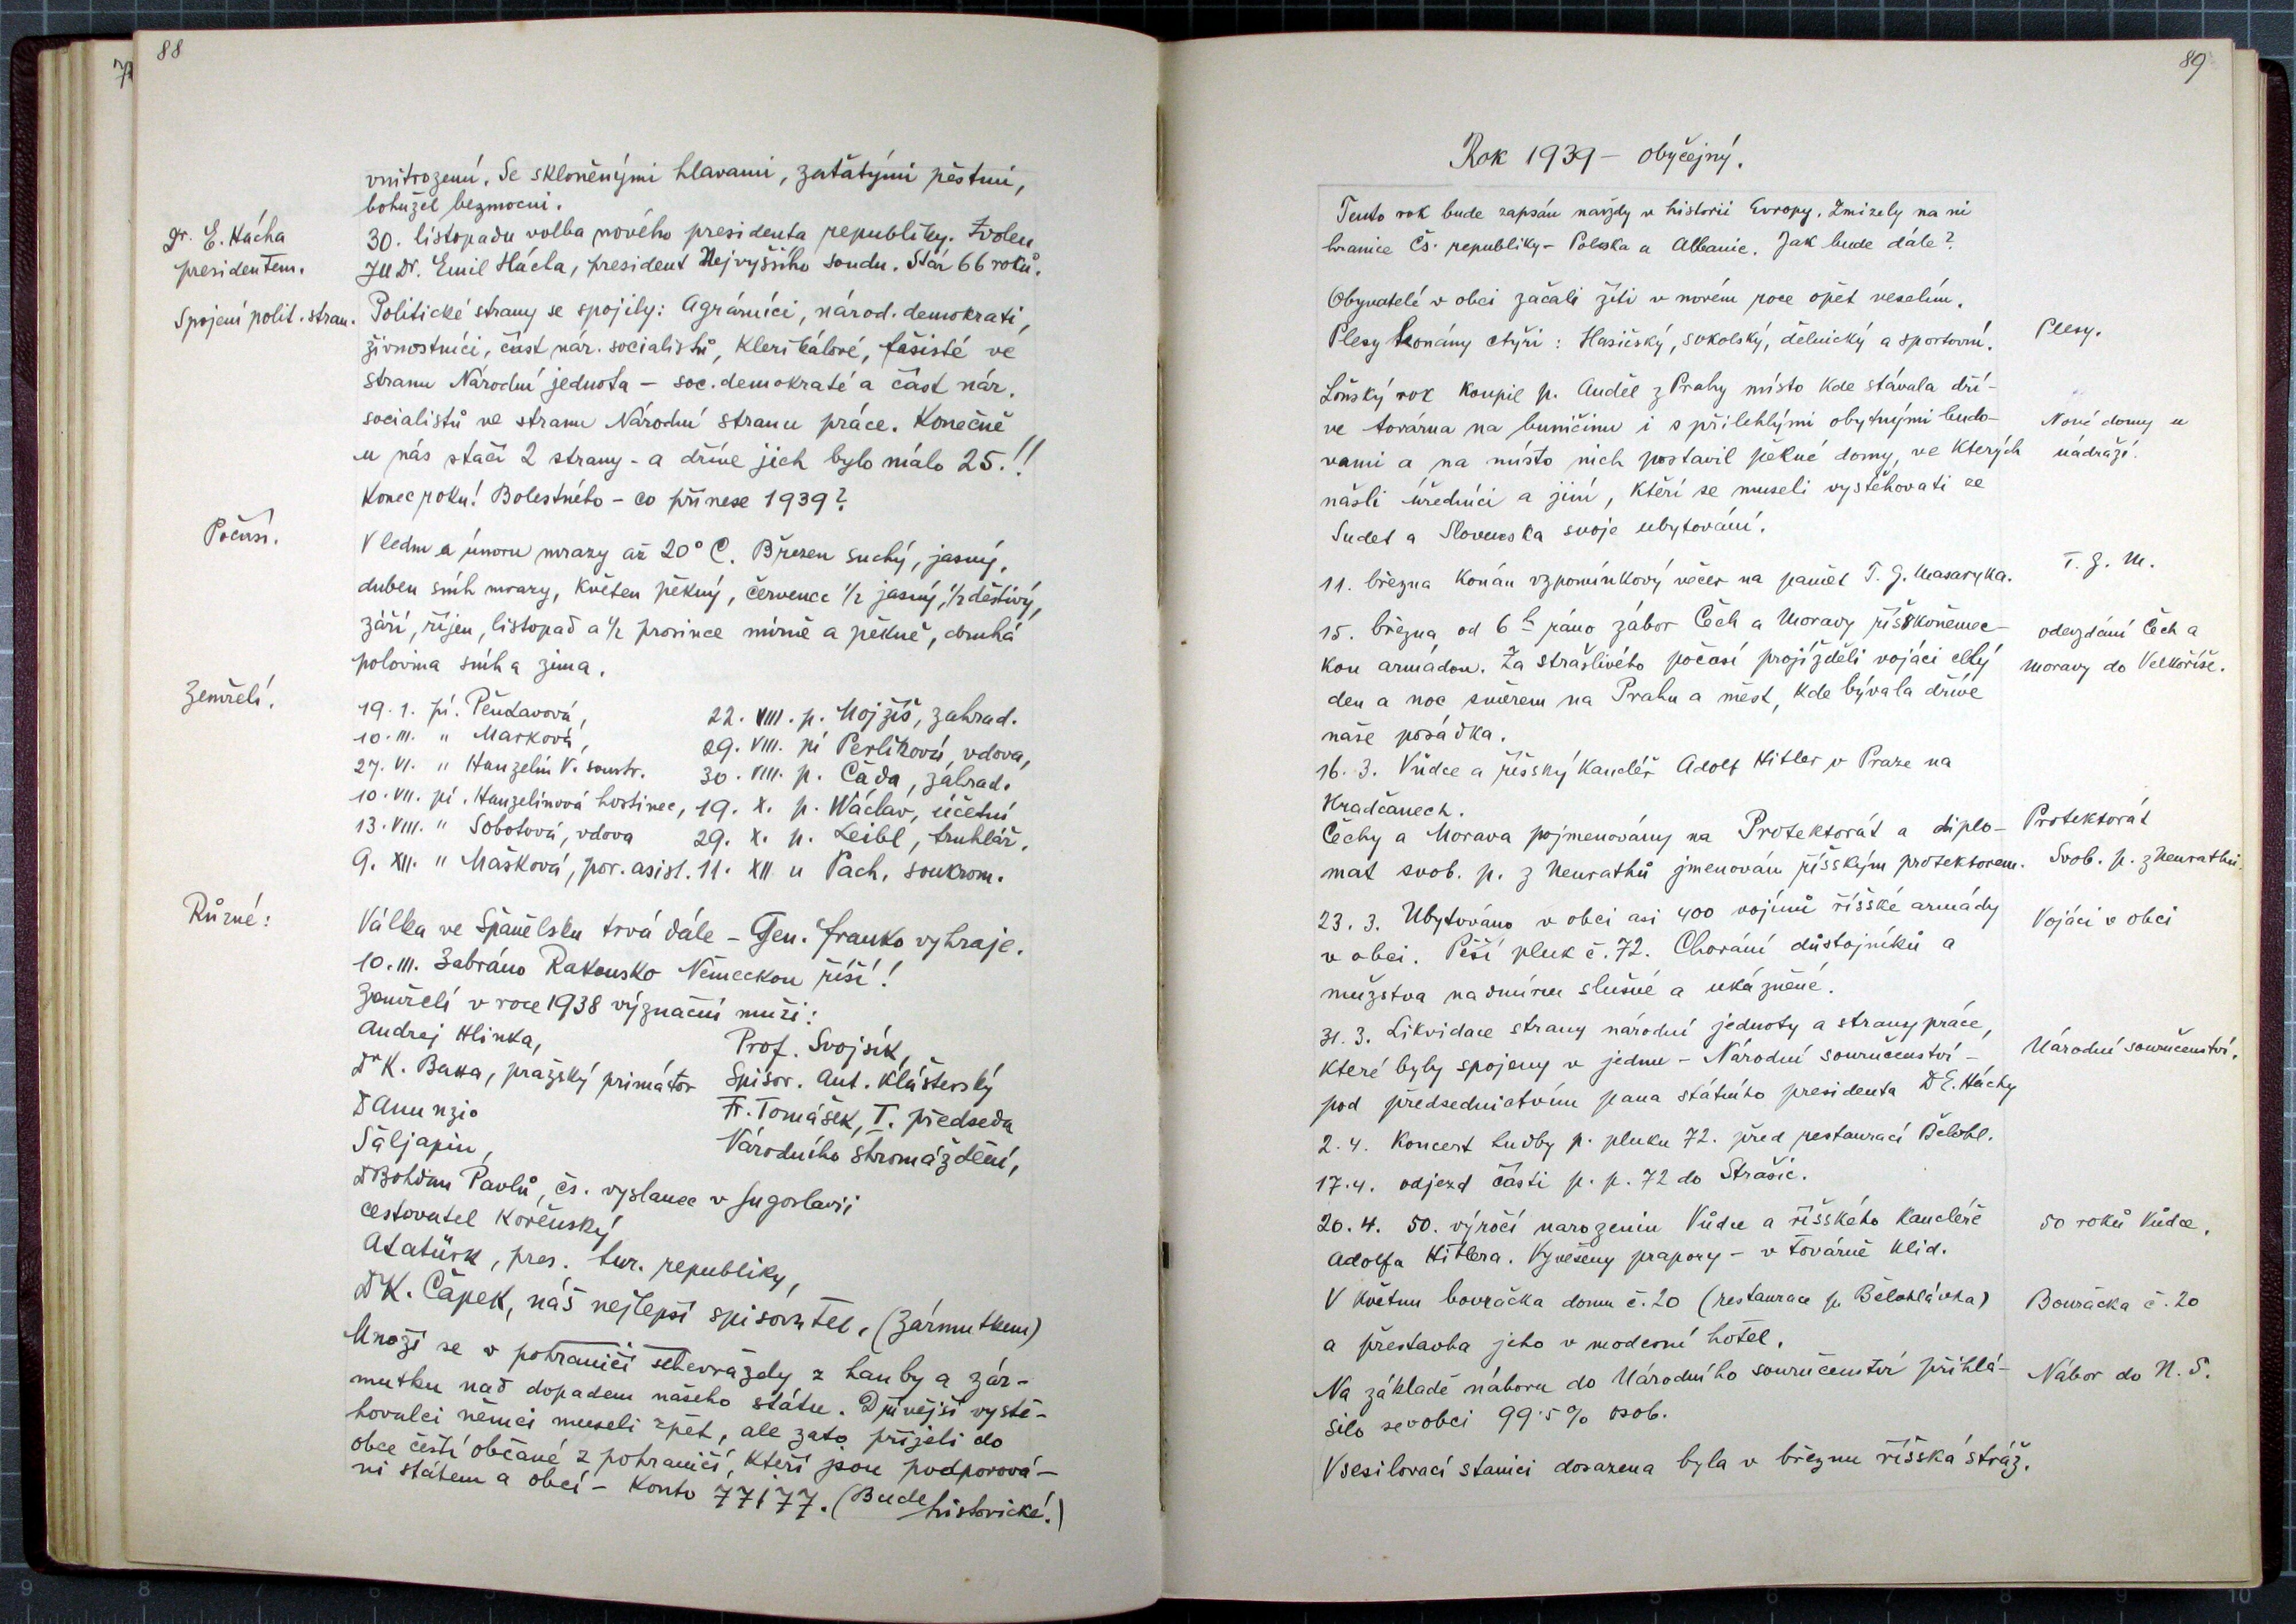 88
vnitrozemí. Se skloněnými hlavami, zaťatými pěstmi,
bohužel bezmocni.
Dr. E. Hácha
presidentem.
30. listopadu volba nového presidenta republiky. Zvolen
JUDr. Emil Hácha, president Nejvyššího soudu. Stár 66 roků.
Spojení polit. stran.
Politické strany se spojily: Agrárníci, národ. demokrati,
živnostníci, část nár. socialistů, klerikálové, fašisté ve
stranu Národní jednota – soc. demokraté a část nár.
socialistů ve stranu Národní stranu práce. Konečně
u nás stačí 2 strany - a dříve jich bylo málo 25.!!
Konec roku! Bolestného – co přinese 1939?
Počasí.
V lednu a únoru mrazy až 20° C. Březen suchý, jasný,
duben sníh mrazy, květen pěkný, červenec 1/2 jasný, 1/2 deštivý,
září, říjen, listopad a 1/2 prosince mírně a pěkně, druhá
polovina sníh a zima.
Zemřelí.
19. 1. pí. Pěnkavová,
10. III. " Marková,
27. VI. " Hanzelín V. soustr.
10. VII. pí. Hanzelínová hostinec,
13. VIII. " Sobotová, vdova
9. XII. " Mašková, por. asist.
22. VIII. p. Mojžíš, zahrad.
29. VIII. pí Perlíková, vdova,
30. VIII. p. Čáda, zahrad.
19. X. p. Wáclav, účetní
29. X. p. Leibl, truhlář.
11. XII. u Pach, soukrom.
Různé:
Válka ve Španělsku trvá dále – Gen. Franko vyhraje.
10. III. Zabráno Rakousko Německou říší!
Zemřeli v roce 1938 význační muži:
Andrej Hlinka,
Dr K. Baxa, pražský primátor
D Anunzio
Šaljapin,
Prof. Svojsík,
Spisov. Ant. Klášterský
Fr. Tomášek, I. předseda
Národního shromáždění,
Dr Bohdan Pavlů, čs. vyslanec v Jugoslavii
cestovatel Kořenský
Atatürk, pres. tur. republiky,
Dr K. Čapek, náš nejlepší spisovatel. (Zármutkem)
Množí se v pohraničí sebevraždy z hanby a zár-
mutku nad dopadem našeho státu. Dřívější vystě-
hovalci němci museli zpět, ale zato přijeli do
obce čeští občané z pohraničí, kteří jsou podporová-
ni státem a obcí – Konto 77177. (Bude historické!)
89
Rok 1939 – obyčejný.
Tento rok bude zapsán navždy v historii Evropy. Zmizely na ni
hranice Čs. republiky – Polska a Albanie. Jak bude dále?
Obyvatelé v obci začali žíti v novém roce opět veselím.
Plesy konány čtyři: Hasičský, sokolský, dělnický a sportovní.
Plesy.
Loňský rok koupil p. Anděl z Prahy místo kde stávala dří-
ve továrna na buničinu i s přilehlými obytnými budo-
vami a na místo nich postavil pěkné domy, ve kterých
našli úředníci a jiní, kteří se museli vystěhovati ze
Sudet a Slovenska svoje ubytování.
Nové domy u
nádraží.
11. března konán vzpomínkový večer na paměť T. G. Masaryka.
T. G. M.
15. března od 6 h ráno zábor Čech a Moravy říškoněmec-
kou armádou. Za strašlivého počasí projížděli vojáci celý
den a noc směrem na Prahu a měst, kde bývala dříve
naše posádka.
odevzdání Čech a
Moravy do Velkoříše.
16. 3. Vůdce a říšský kancléř Adolf Hitler v Praze na
Hradčanech.
Čechy a Morava pojmenovány na Protektorát a diplo-
mat svob. p. z Neurathů jmenován říšským protektorem.
Protektorát
Svob. p. z Neurathů.
23. 3. Ubytováno v obci asi 400 vojínů říšské armády
v obci. Pěší pluk č. 72. Chování důstojníků a
mužstva nadmíru slušné a ukázněné.
Vojáci v obci
31. 3. Likvidace strany národní jednoty a strany práce,
které byly spojeny v jednu – Národní souručenství –
pod předsednictvím pana státního presidenta Dr E. Háchy
Národní souručenství.
2. 4. Koncert hudby p. pluku 72. před restaurací Bělohl.
17. 4. odjezd části p. p. 72 do Strašic.
20. 4. 50. výročí narozenin Vůdce a říšského kancléře
Adolfa Hitlera. Vyvěšeny prapory – v továrně klid.
50 roků Vůdce.
V květnu bouračka domu č. 20 (restaurace p. Bělohlávka)
a přestavba jeho v moderní hotel.
Bouračka č. 20
Na základě náboru do Národního souručenství přihlá-
silo se v obci 99·5% osob.
Nábor do N. S.
V sesilovací stanici dosazena byla v březnu říšská stráž.